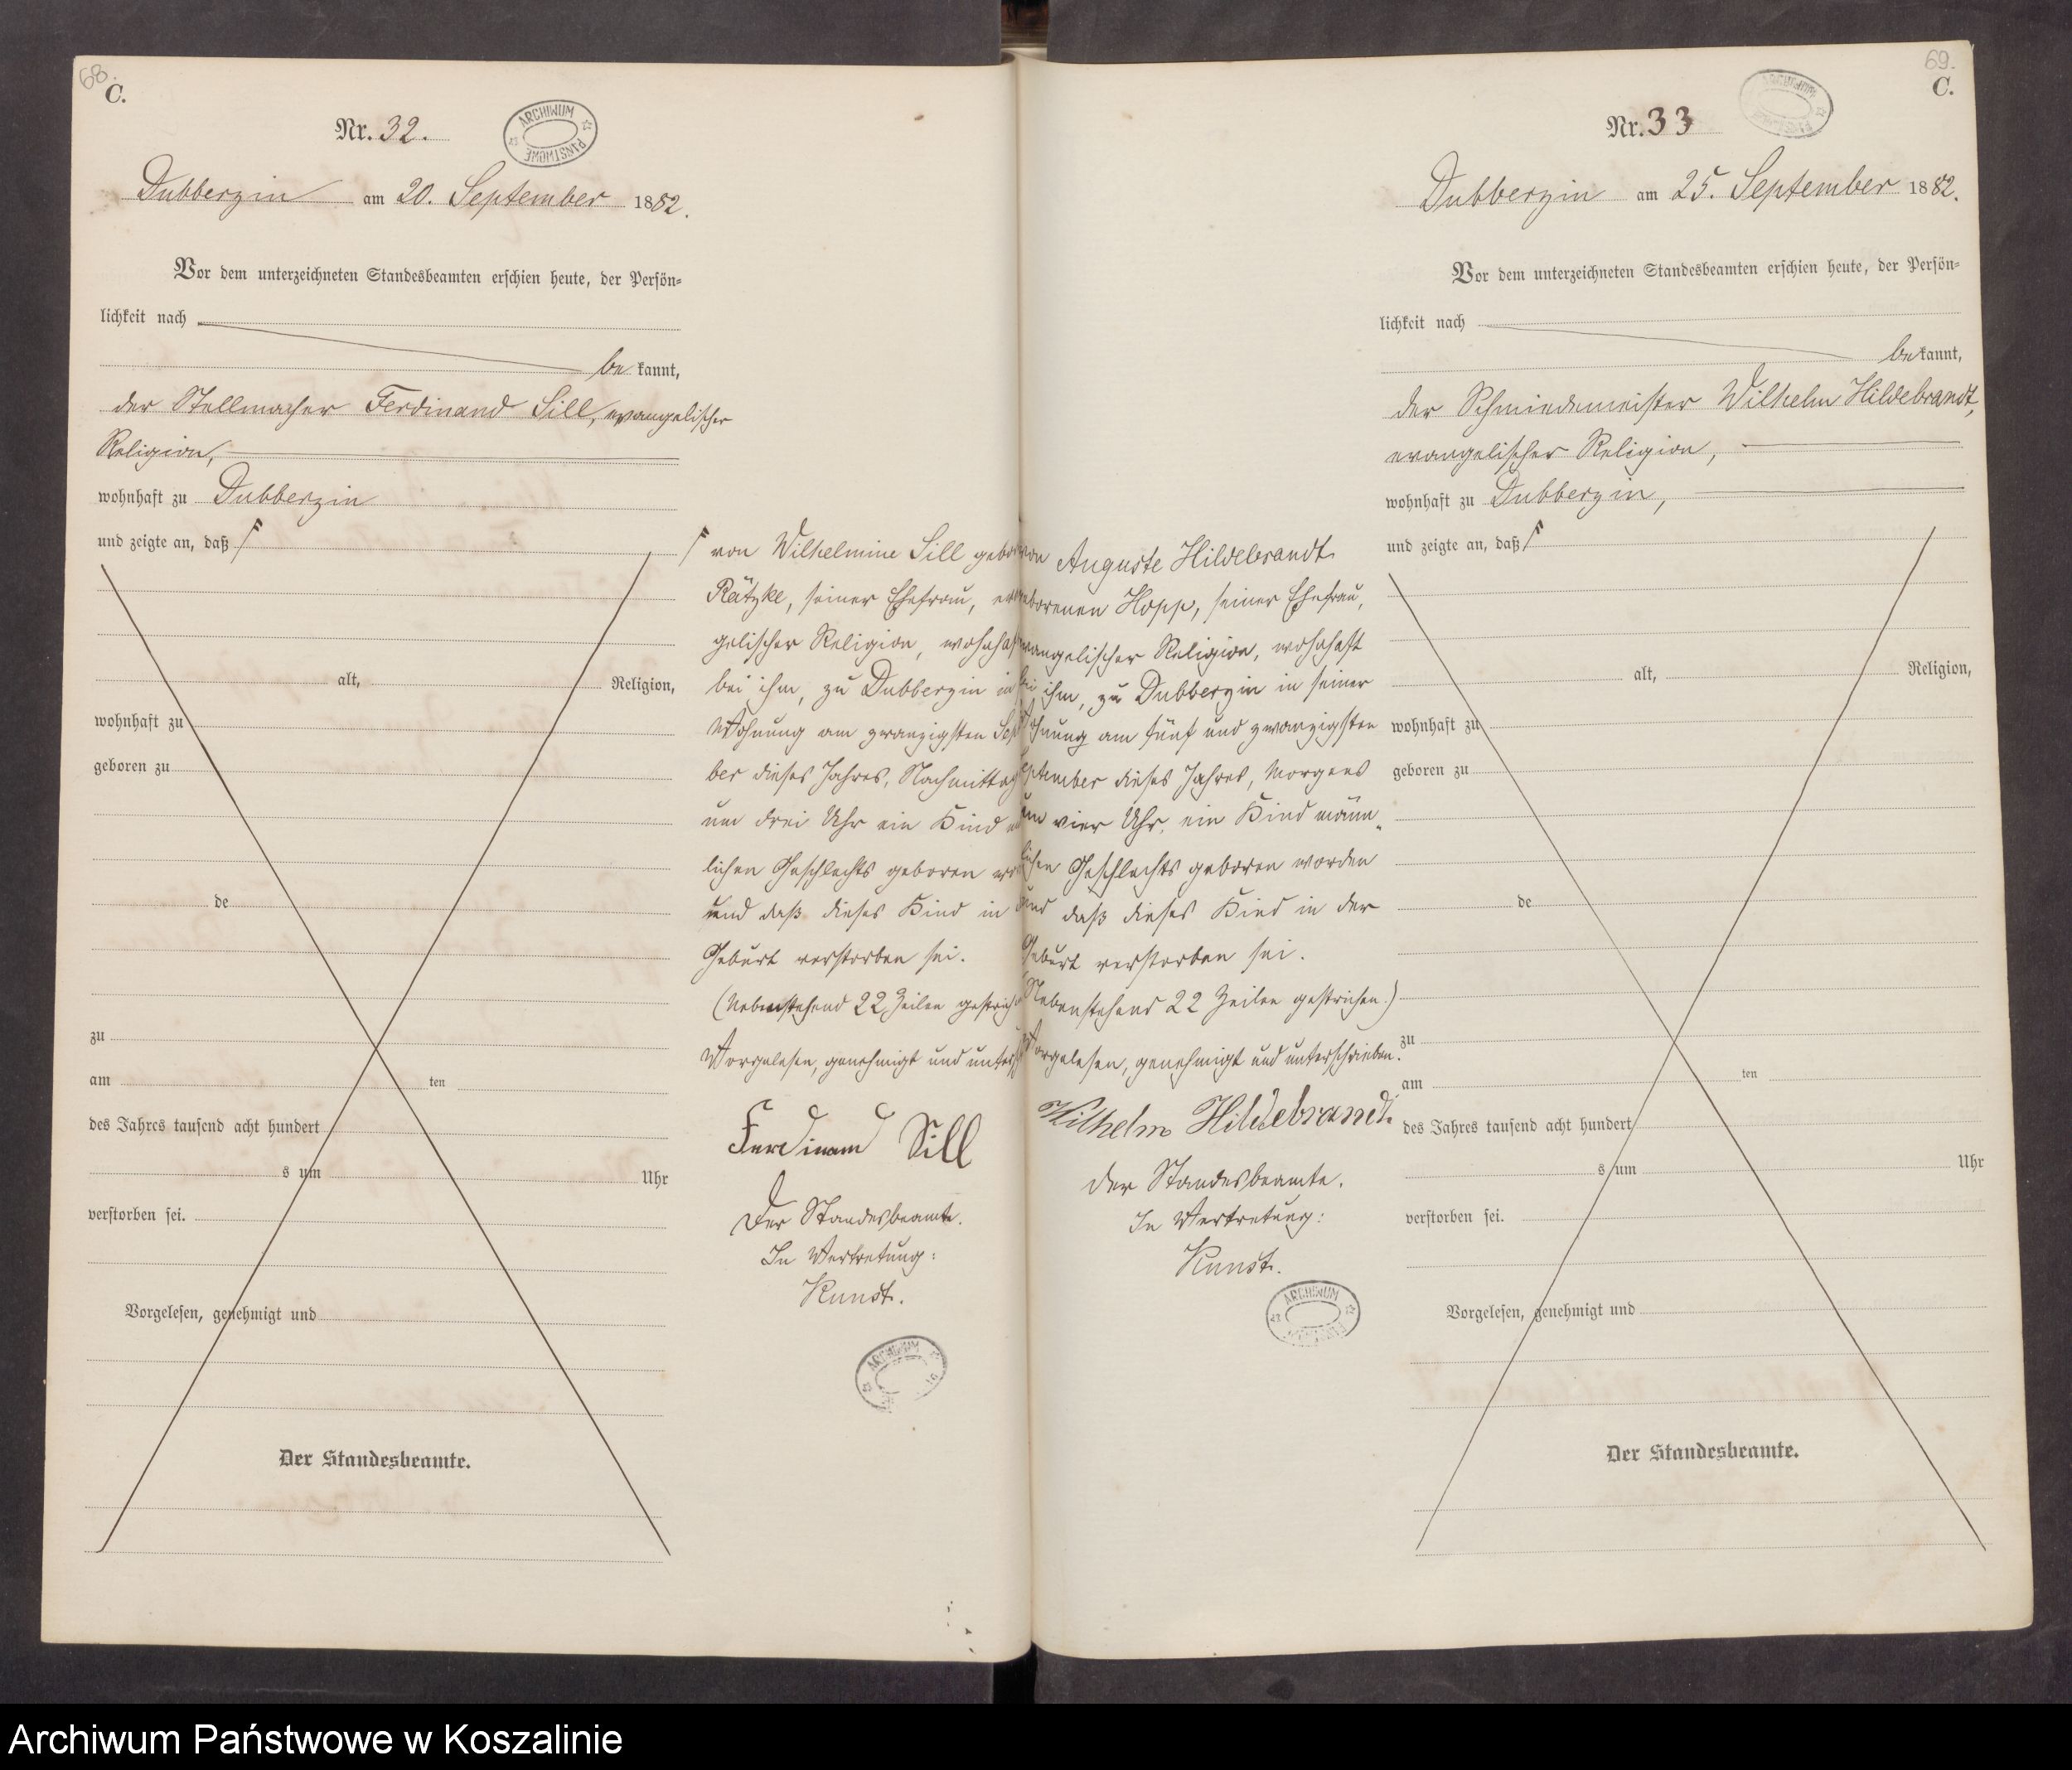 68.
C.
Nr. 32.
ARCHIWUM PAŃSTWOWE
Dubberzin am 20. September 1882.
Vor dem unterzeichneten Standesbeamten erschien heute, der Persön=
lichkeit nach
be kannt,
der Stellmacher Ferdinand Sill, evangelischer
Religion,
wohnhaft zu Dubberzin
und zeigte an, daß
alt, Religion,
wohnhaft zu
geboren zu
de
zu
am ten
des Jahres tausend acht hundert
s um Uhr
verstorben sei.
Vorgelesen, genehmigt und
Der Standesbeamte.
von Wilhelmine Sill gebor
Rätzke, seiner Ehefrau, evan
gelischer Religion, wohnhaf
bei ihm, zu Dubberzin in
Wohnung am zwanzigsten Sep
ber dieses Jahres, Nachmittag
um drei Uhr ein Kind
lichen Geschlechts geboren wor
und daß dieses Kind in
Geburt verstorben sei.
(Nebenstehend 22 Zeilen gestrich
Vorgelesen, genehmigt und untersch
Ferdinand Sill
Der Standesbeamte.
In Vertretung:
Kunst.
ARCHIWUM
69.
C.
Nr. 33
ARCHIWUM PAŃSTWOWE
Dubberzin am 25. September 1882.
Vor dem unterzeichneten Standesbeamten erschien heute, der Persön=
lichkeit nach
be kannt,
der Schmiedemeister Wilhelm Hildebrandt,
evangelischer Religion,
wohnhaft zu Dubberzin,
und zeigte an, daß
von Auguste Hildebrandt
geborenen Hopp, seiner Ehefrau,
evangelischer Religion, wohnhaft
bei ihm, zu Dubberzin in seiner
Wohnung am fünf und zwanzigsten
September dieses Jahres, Morgens
um vier Uhr, ein Kind männ„
lichen Geschlechts geboren worden
und daß dieses Kind in der
Geburt verstorben sei.
(Nebenstehend 22 Zeilen gestrichen.)
Vorgelesen, genehmigt und unterschrieben.
Wilhelm Hildebrandt.
Der Standesbeamte.
In Vertretung:
Kunst.
ARCHIWUM PAŃSTWOWE
alt, Religion,
wohnhaft zu
geboren zu
de
zu
am ten
des Jahres tausend acht hundert
s um Uhr
verstorben sei.
Vorgelesen, genehmigt und
Der Standesbeamte.
Archiwum Państwowe w Koszalinie